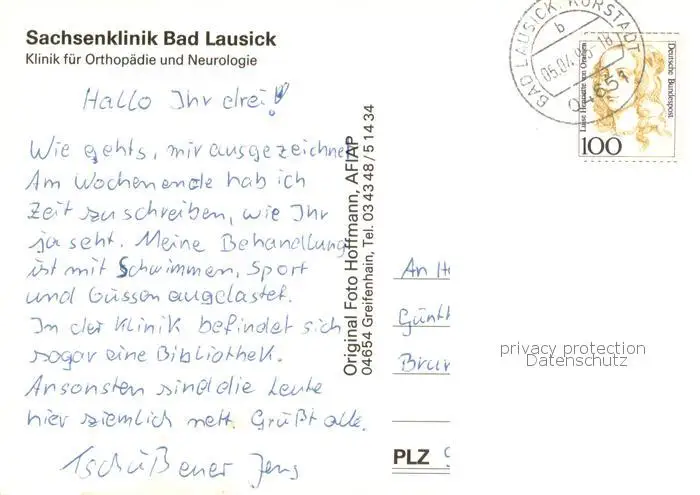 Sachsenklinik Bad Lausick
Klinik für Orthopädie und Neurologie
Hallo Ihr drei!
Wie gehts, mir ausgezeichnet
Am Wochenende hab ich
Zeit zu schreiben, wie Ihr
ja seht. Meine Behandlung
ist mit Schwimmen, Sport
und Güssen ausgelastet.
In der Klinik befindet sich
sogar eine Bibliothek.
Ansonsten sind die Leute
hier ziemlich nett. Grüßt alle.
Tschüß euer Jens
Original Foto Hoffmann, AFIAP
04654 Greifenhain, Tel. 03 43 48 / 5 14 34
BAD LAUSICK, KURSTADT
b
05.04.95-18
04651
Luise Henriette von Oranien
100
Deutsche Bundespost
An
Günth
Brun
privacy protection
Datenschutz
PLZ